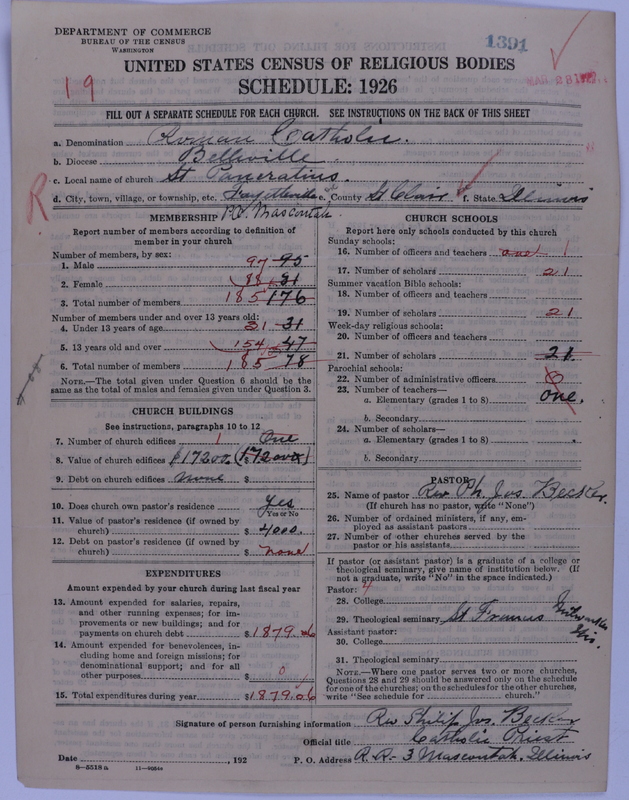 DEPARTMENT OF COMMERCE
BUREAU OF THE CENSUS
WASHINGTON
1391
UNITED STATES CENSUS OF RELIGIOUS BODIES
19
SCHEDULE: 1926
FILL OUT A SEPARATE SCHEDULE FOR EACH CHURCH. SEE INSTRUCTIONS ON THE BACK OF THIS SHEET
a. Denomination Roman Catholic.
b. Diocese Belleville
c. Local name of church St Pancratius.
R d. City, town, village, or township, etc. Fayetteville e. County St Clair f. State Illinois
P.O. Mascoutah
MEMBERSHIP
Report number of members according to definition of
member in your church
Number of members, by sex:
1. Male 97 95
2. Female 88 81
3. Total number of members 185 176
Number of members under and over 13 years old:
4. Under 13 years of age 31 31
5. 13 years old and over 154 47
6. Total number of members 185 78
NOTE.—The total given under Question 6 should be the
same as the total of males and females given under Question 3.
CHURCH BUILDINGS
See instructions, paragraphs 10 to 12
7. Number of church edifices 1 One
8. Value of church edifices $17200
9. Debt on church edifices none $
10. Does church own pastor's residence? yes
Yes or No
11. Value of pastor's residence (if owned by
church) $ 4000.
12. Debt on pastor's residence (if owned by
church) $ none
EXPENDITURES
Amount expended by your church during last fiscal year
13. Amount expended for salaries, repairs,
and other running expenses; for im-
provements or new buildings; and for
payments on church debt $ 1879.06
14. Amount expended for benevolences, in-
cluding home and foreign missions; for
denominational support; and for all
other purposes $ 0
15. Total expenditures during year $ 1879.06
CHURCH SCHOOLS
Report here only schools conducted by this church
Sunday schools:
16. Number of officers and teachers one 1
17. Number of scholars 21
Summer vacation Bible schools:
18. Number of officers and teachers
19. Number of scholars 21
Week-day religious schools:
20. Number of officers and teachers
21. Number of scholars 21
Parochial schools:
22. Number of administrative officers
23. Number of teachers—
a. Elementary (grades 1 to 8) one.
b. Secondary
24. Number of scholars—
a. Elementary (grades 1 to 8)
b. Secondary
PASTOR
25. Name of pastor Rev Ph. Jos. Becker.
(If church has no pastor, write "None")
26. Number of ordained ministers, if any, em-
ployed as assistant pastors
27. Number of other churches served by the
pastor or his assistants
If pastor (or assistant pastor) is a graduate of a college or
theological seminary, give name of institution below. (If
not a graduate, write "No" in the space indicated.)
Pastor: 4
28. College
29. Theological seminary St Francis Milwaukee Wis.
Assistant pastor:
30. College
31. Theological seminary
NOTE.—Where one pastor serves two or more churches,
Questions 28 and 29 should be answered only on the schedule
for one of the churches; on the schedules for the other churches,
write "See schedule for church."
Signature of person furnishing information Rev Philip Jos. Becker
Official title Catholic Priest
Date , 192 P. O. Address R.R.- 3 Mascoutah, Illinois
8—5518 a 11—9054a